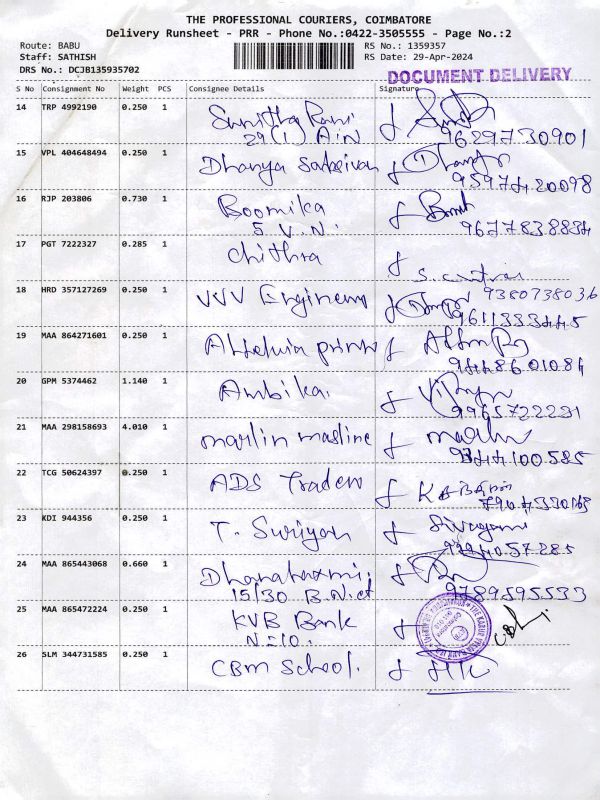 THE PROFESSIONAL COURIERS, COIMBATORE
Delivery Runsheet - PRR - Phone No.:0422-3505555 - Page No.:2
Route: BABU
Staff: SATHISH
DRS No.: DCJB135935702
RS No.: 1359357
RS Date: 29-Apr-2024
DOCUMENT DELIVERY
S No Consignment No Weight PCS Consignee Details Signature
14 TRP 4992190 0.250 1 Sunitha Rani
29(1) A.N 9629730901
15 VPL 404648494 0.250 1 Dhanya
9597420098
16 RJP 203806 0.730 1 Boomika
S.V.N. 9677838834
17 PGT 7222327 0.285 1 Chithra
18 HRD 357127269 0.250 1 VVV Engineers 9380738036
9611333445
19 MAA 864271601 0.250 1 prints
9448601084
20 GPM 5374462 1.140 1 Ambika.
9965722231
21 MAA 298158693 4.010 1 marlin
100585
22 TCG 50624397 0.250 1 ADS Traders
23 KDI 944356 0.250 1 T. Suriyan
57285
24 MAA 865443068 0.660 1 Dhanalaxmi,
15/30 9789595533
25 MAA 865472224 0.250 1 KVB Bank
26 SLM 344731585 0.250 1 CBM School.